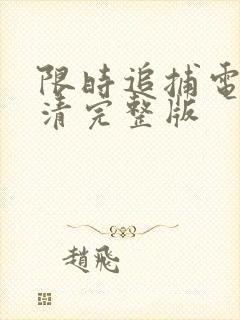 限時追捕電
清完整版
趙飛